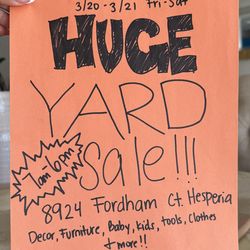 3/20 - 3/21 Fri-Sat
HUGE
YARD
Sale!!!
7am-6pm
8924 Fordham Ct. Hesperia
Decor, Furniture, Baby, kids, tools, Clothes
& more!!